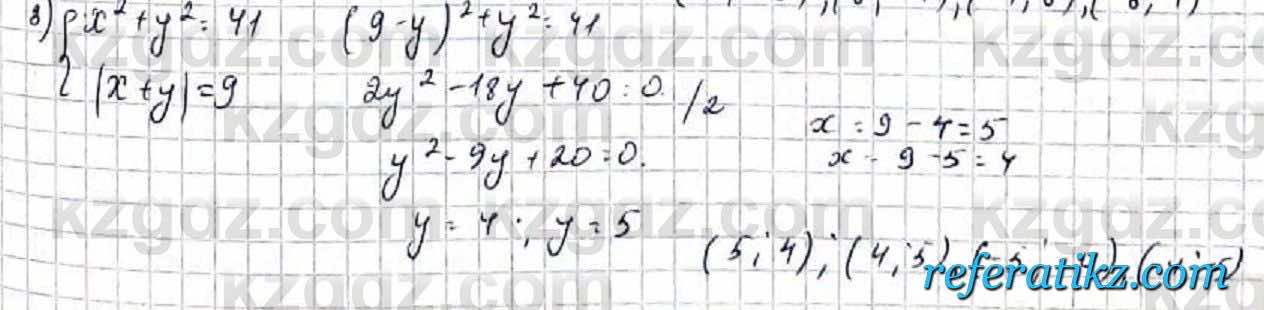 8) { x² + y² = 41
|x + y| = 9
(9 - y)² + y² = 41
2y² - 18y + 40 = 0 /2
y² - 9y + 20 = 0.
y = 4 ; y = 5
x = 9 - 4 = 5
x = 9 - 5 = 4
(5; 4); (4; 5)
kzgdz.com
referatikz.com